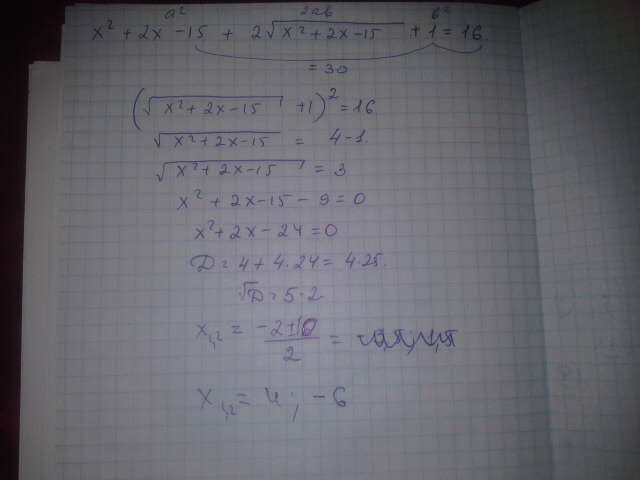 a² 2ab b²
x² + 2x - 15 + 2√(x² + 2x - 15) + 1 = 16
= 30
(√(x² + 2x - 15) + 1)² = 16
√(x² + 2x - 15) = 4 - 1.
√(x² + 2x - 15) = 3
x² + 2x - 15 - 9 = 0
x² + 2x - 24 = 0
D = 4 + 4·24 = 4·25.
√D = 5·2
x₁,₂ = (-2 ± 10)/2 =
x₁,₂ = 4; -6